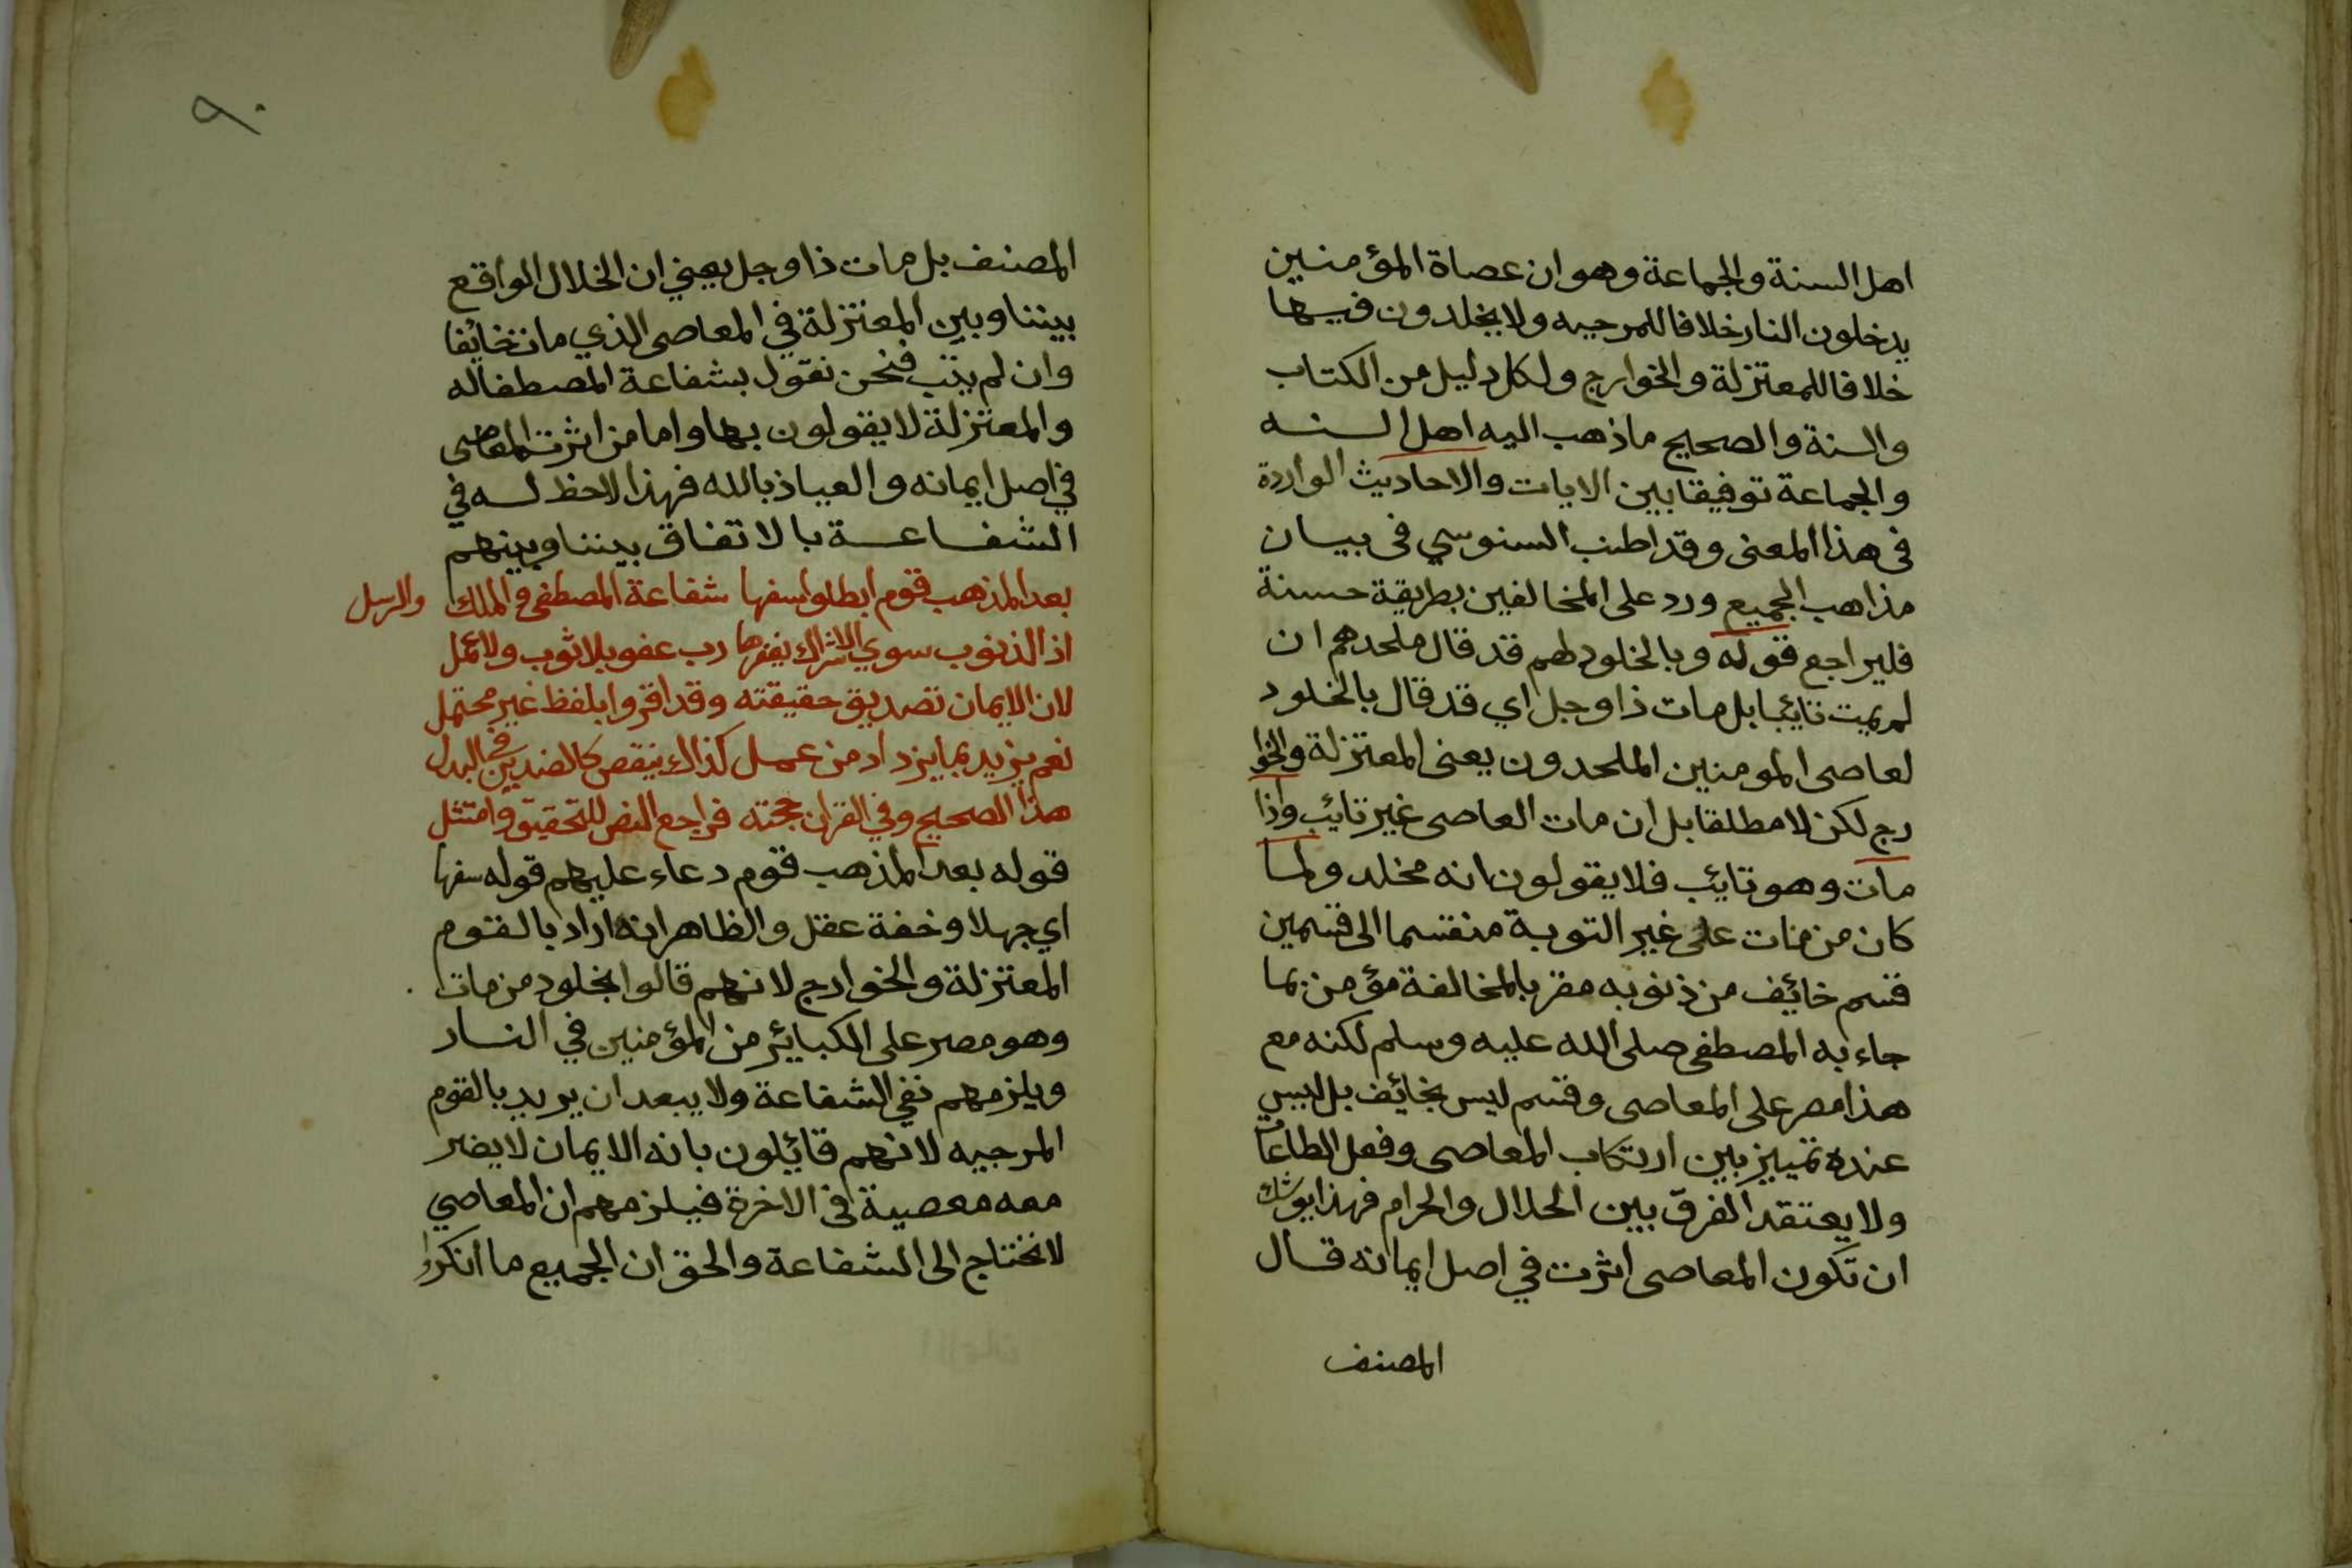 اهل السنة والجماعة وهو ان عصاة المؤمنين
يدخلون النار خلافا للمرجيه ولا يخلدون فيها
خلافا للمعتزلة والخوارج ولكل دليل من الكتاب
والسنة والصحيح ماذهب اليه اهل السنه
والجماعة توفيقا بين الايات والاحاديث الواردة
فى هذا المعنى وقد اطنب السنوسي فى بيان
مذاهب الجميع ورد على المخالفين بطريقة حسنة
فليراجع قوله وبالخلود لهم قد قال ملحدهم ان
لم يمت تايبا بل مات ذا وجل اي قد قال بالخلود
لعاصى المومنين الملحدون يعنى المعتزلة والخوا
رج لكن لا مطلقا بل ان مات العاصى غير تايب واذا
مات وهو تايب فلا يقولون انه مخلد ولما
كان من مات على غير التوبة منقسما الى قسمين
قسم خائف من ذنوبه مقر بالمخالفة مؤمن بما
جاء به المصطفى صلى الله عليه وسلم لكنه مع
هذا مصر على المعاصى وقسم ليس بخائف بل ليس
عنده تمييز بين ارتكاب المعاصى وفعل الطاعات
ولا يعتقد الفرق بين الحلال والحرام فهذا يوشك
ان تكون المعاصى اثرت في اصل ايمانه قال
المصنف
٩٠
المصنف بل مات ذا وجل يعني ان الخلال الواقع
بيننا وبين المعتزلة في المعاصى الذي مات خائفا
وان لم يتب فنحن نقول بشفاعة المصطفا له
والمعتزلة لا يقولون بها واما من اثرت المعاصى
في اصل ايمانه والعياذ بالله فهذا لاحظ له في
الشفاعة بالاتفاق بيننا وبينهم
بعدا لمذهب قوم ابطلوا سفها شفاعة المصطفى والملك والرسل
اذ الذنوب سوي الاشراك يغفرها رب عفو بلا ثوب ولا عمل
لان الايمان تصديق حقيقته وقد اقروا بلفظ غير محتمل
نعم يزيد بما يزداد من عمل كذاك ينقص كالضدين في البدل
هذا الصحيح وفي القران حجته فراجع النص للتحقيق وامتثل
قوله بعدا لمذهب قوم دعاء عليهم قوله سفها
اي جهلا وخفة عقل والظاهر انه اراد بالقوم
المعتزلة والخوارج لانهم قالوا بخلود من مات
وهو مصر على الكبائر من المؤمنين في النار
ويلزمهم نفي الشفاعة ولا يبعد ان يريد بالقوم
المرجيه لانهم قائلون بانه الايمان لا يضر
معه معصية في الاخرة فيلزمهم ان المعاصي
لا تحتاج الى الشفاعة والحق ان الجميع ما انكروا